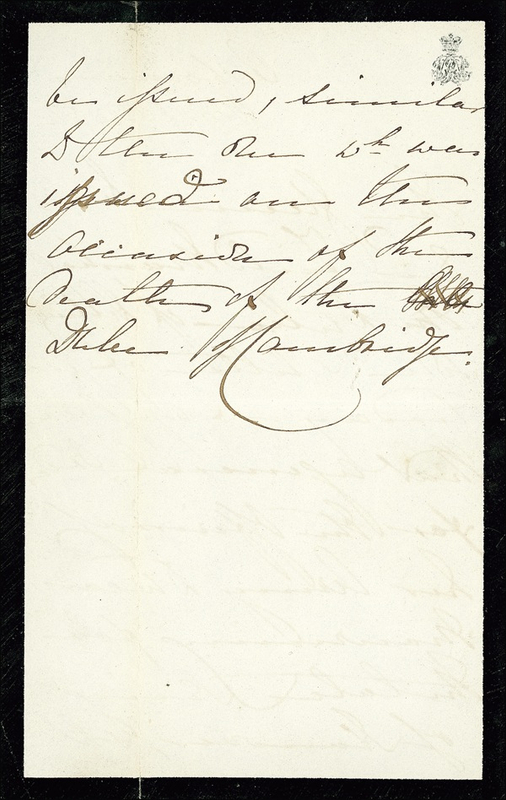 be issued, similar
to the one wh was
issued on the
occasion of the
Death of the
Duke of Cambridge.